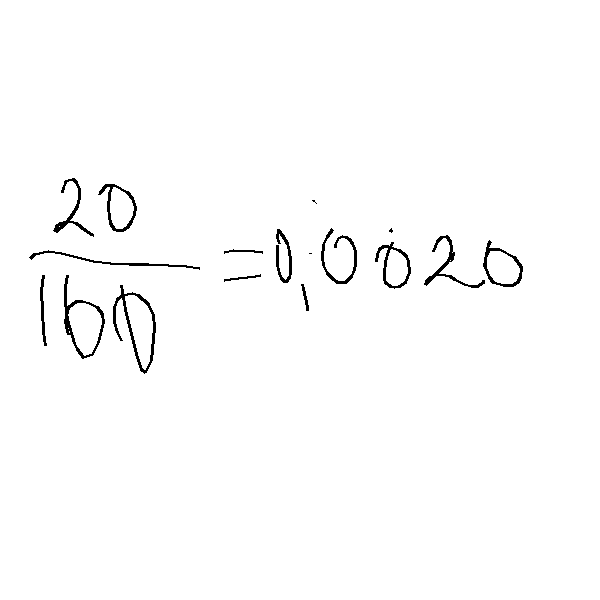 20
100
=0,0020